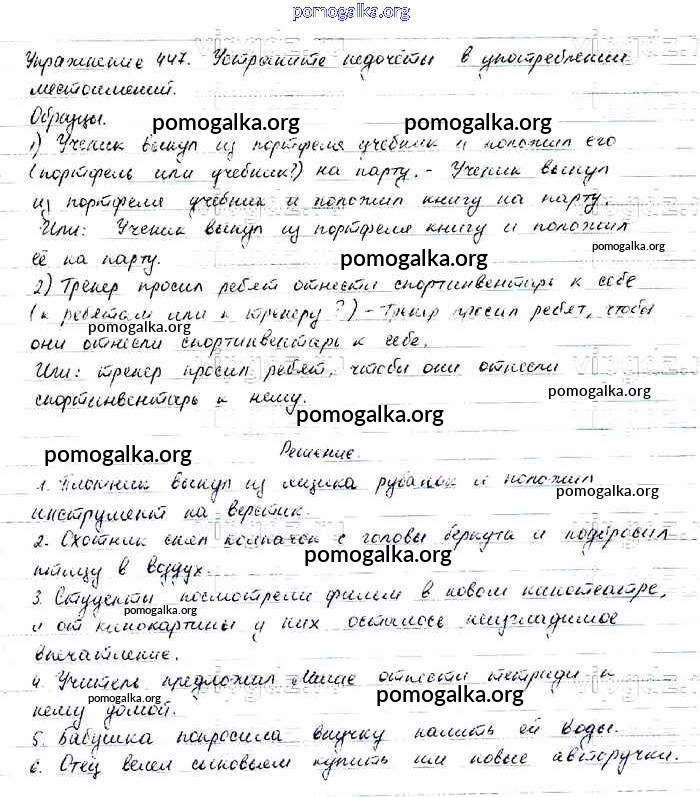 pomogalka.org
Упражнение 447. Устраните недочёты в употреблении
местоимений.
Образцы.
pomogalka.org pomogalka.org
1) Ученик вынул из портфеля учебник и положил его
(портфель или учебник?) на парту. - Ученик вынул
из портфеля учебник и положил книгу на парту.
Или: Ученик вынул из портфеля книгу и положил
pomogalka.org
её на парту.
pomogalka.org
2) Тренер просил ребят отнести спортинвентарь к себе
(к ребятам или к тренеру?) - Тренер просил ребят, чтобы
pomogalka.org
они отнесли спортинвентарь к себе.
Или: тренер просил ребят, чтобы они отнесли
спортинвентарь к нему.
pomogalka.org
pomogalka.org
pomogalka.org
Решение.
1. Плотник вынул из ящика рубанок и положил
pomogalka.org
инструмент на верстак.
2. Охотник снял колпачок с головы беркута и подбросил
pomogalka.org
птицу в воздух.
3. Студенты посмотрели фильм в новом кинотеатре,
pomogalka.org
и от кинокартины у них осталось неизгладимое
впечатление.
4. Учитель предложил Мише отнести тетради к
pomogalka.org pomogalka.org
нему домой.
5. Бабушка попросила внучку налить ей воды.
6. Отец велел сыновьям купить им новые авторучки.
pomogalka.org